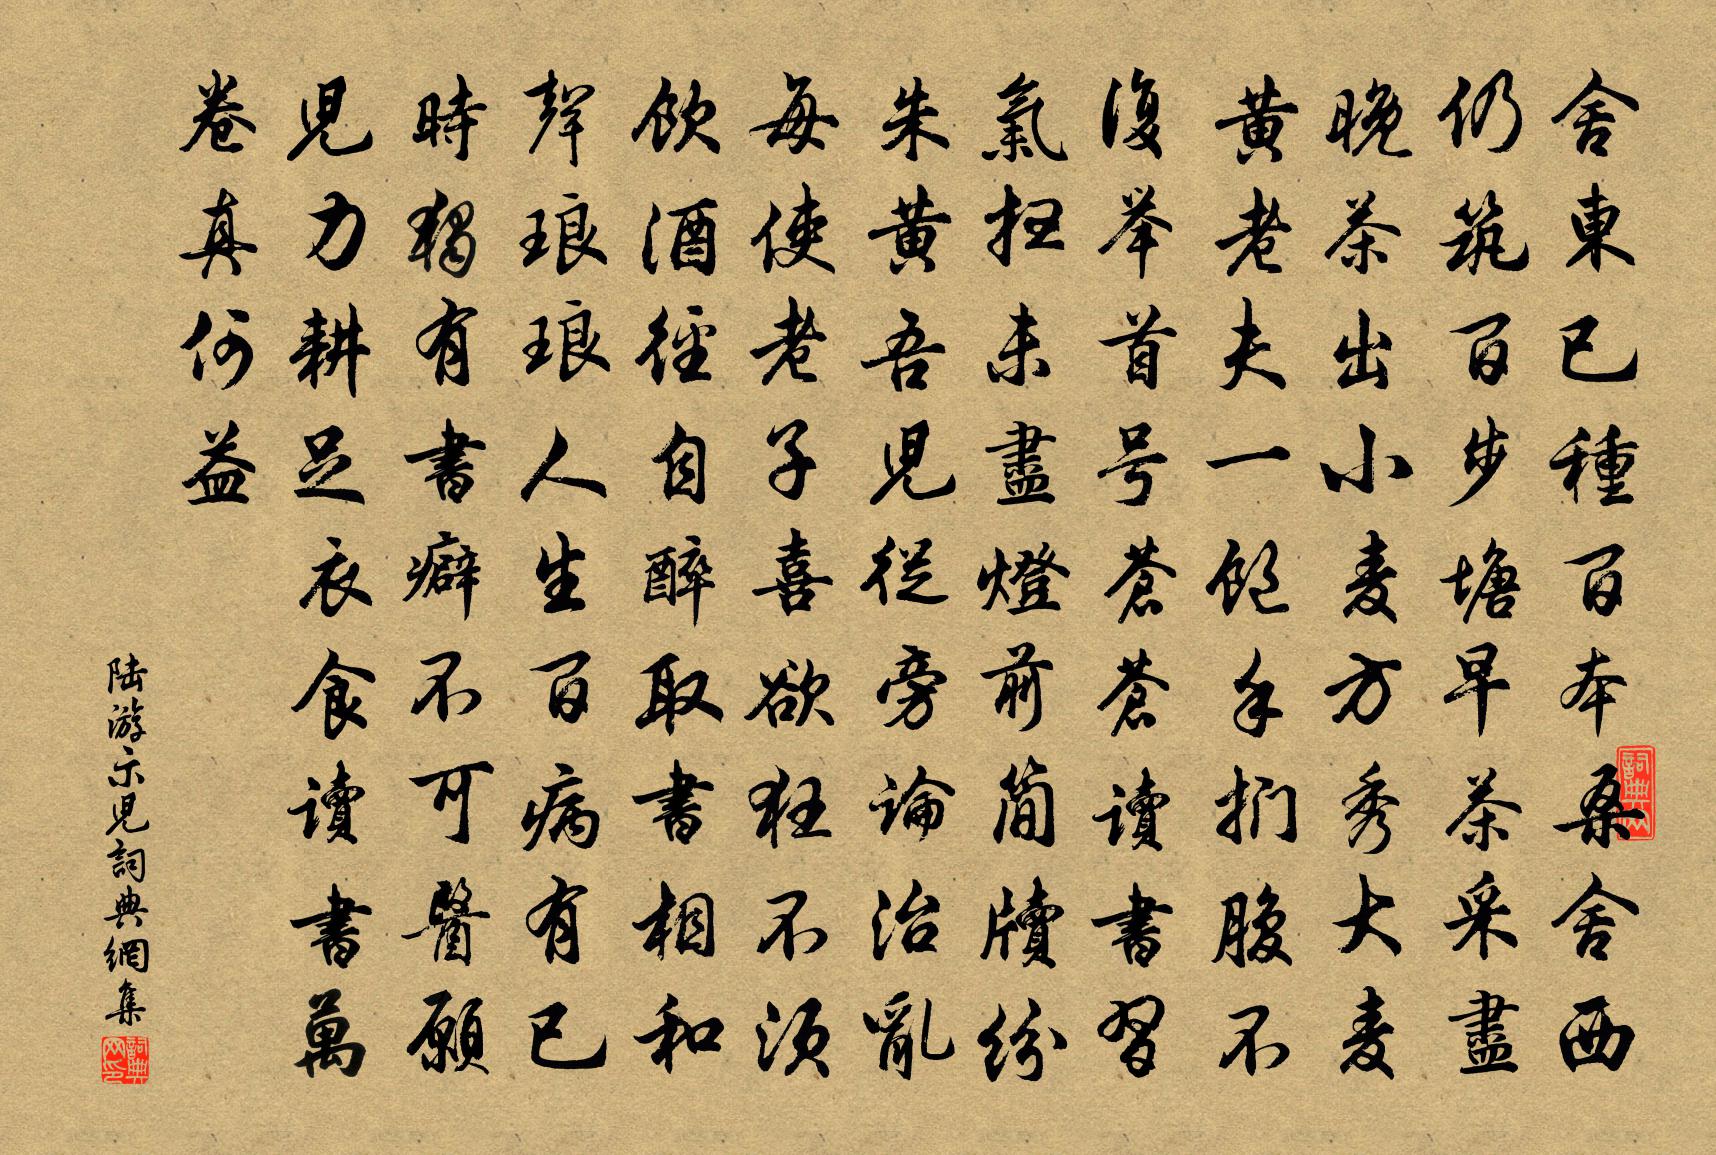 舍東已種百本桑舍西
仍筑百步塘早茶采盡
晚茶出小麦方秀大麦
黄老夫一飽手捫腹不
復举首号蒼蒼讀書習
氣扫未盡燈前簡牘紛
朱黄吾兒從旁論治亂
每使老子喜欲狂不須
飲酒徑自醉取書相和
聲琅琅人生百病有已
時獨有書癖不可醫願
兒力耕足衣食讀書萬
卷真何益
陆游示兒詞典網集
詞典网
詞典网印